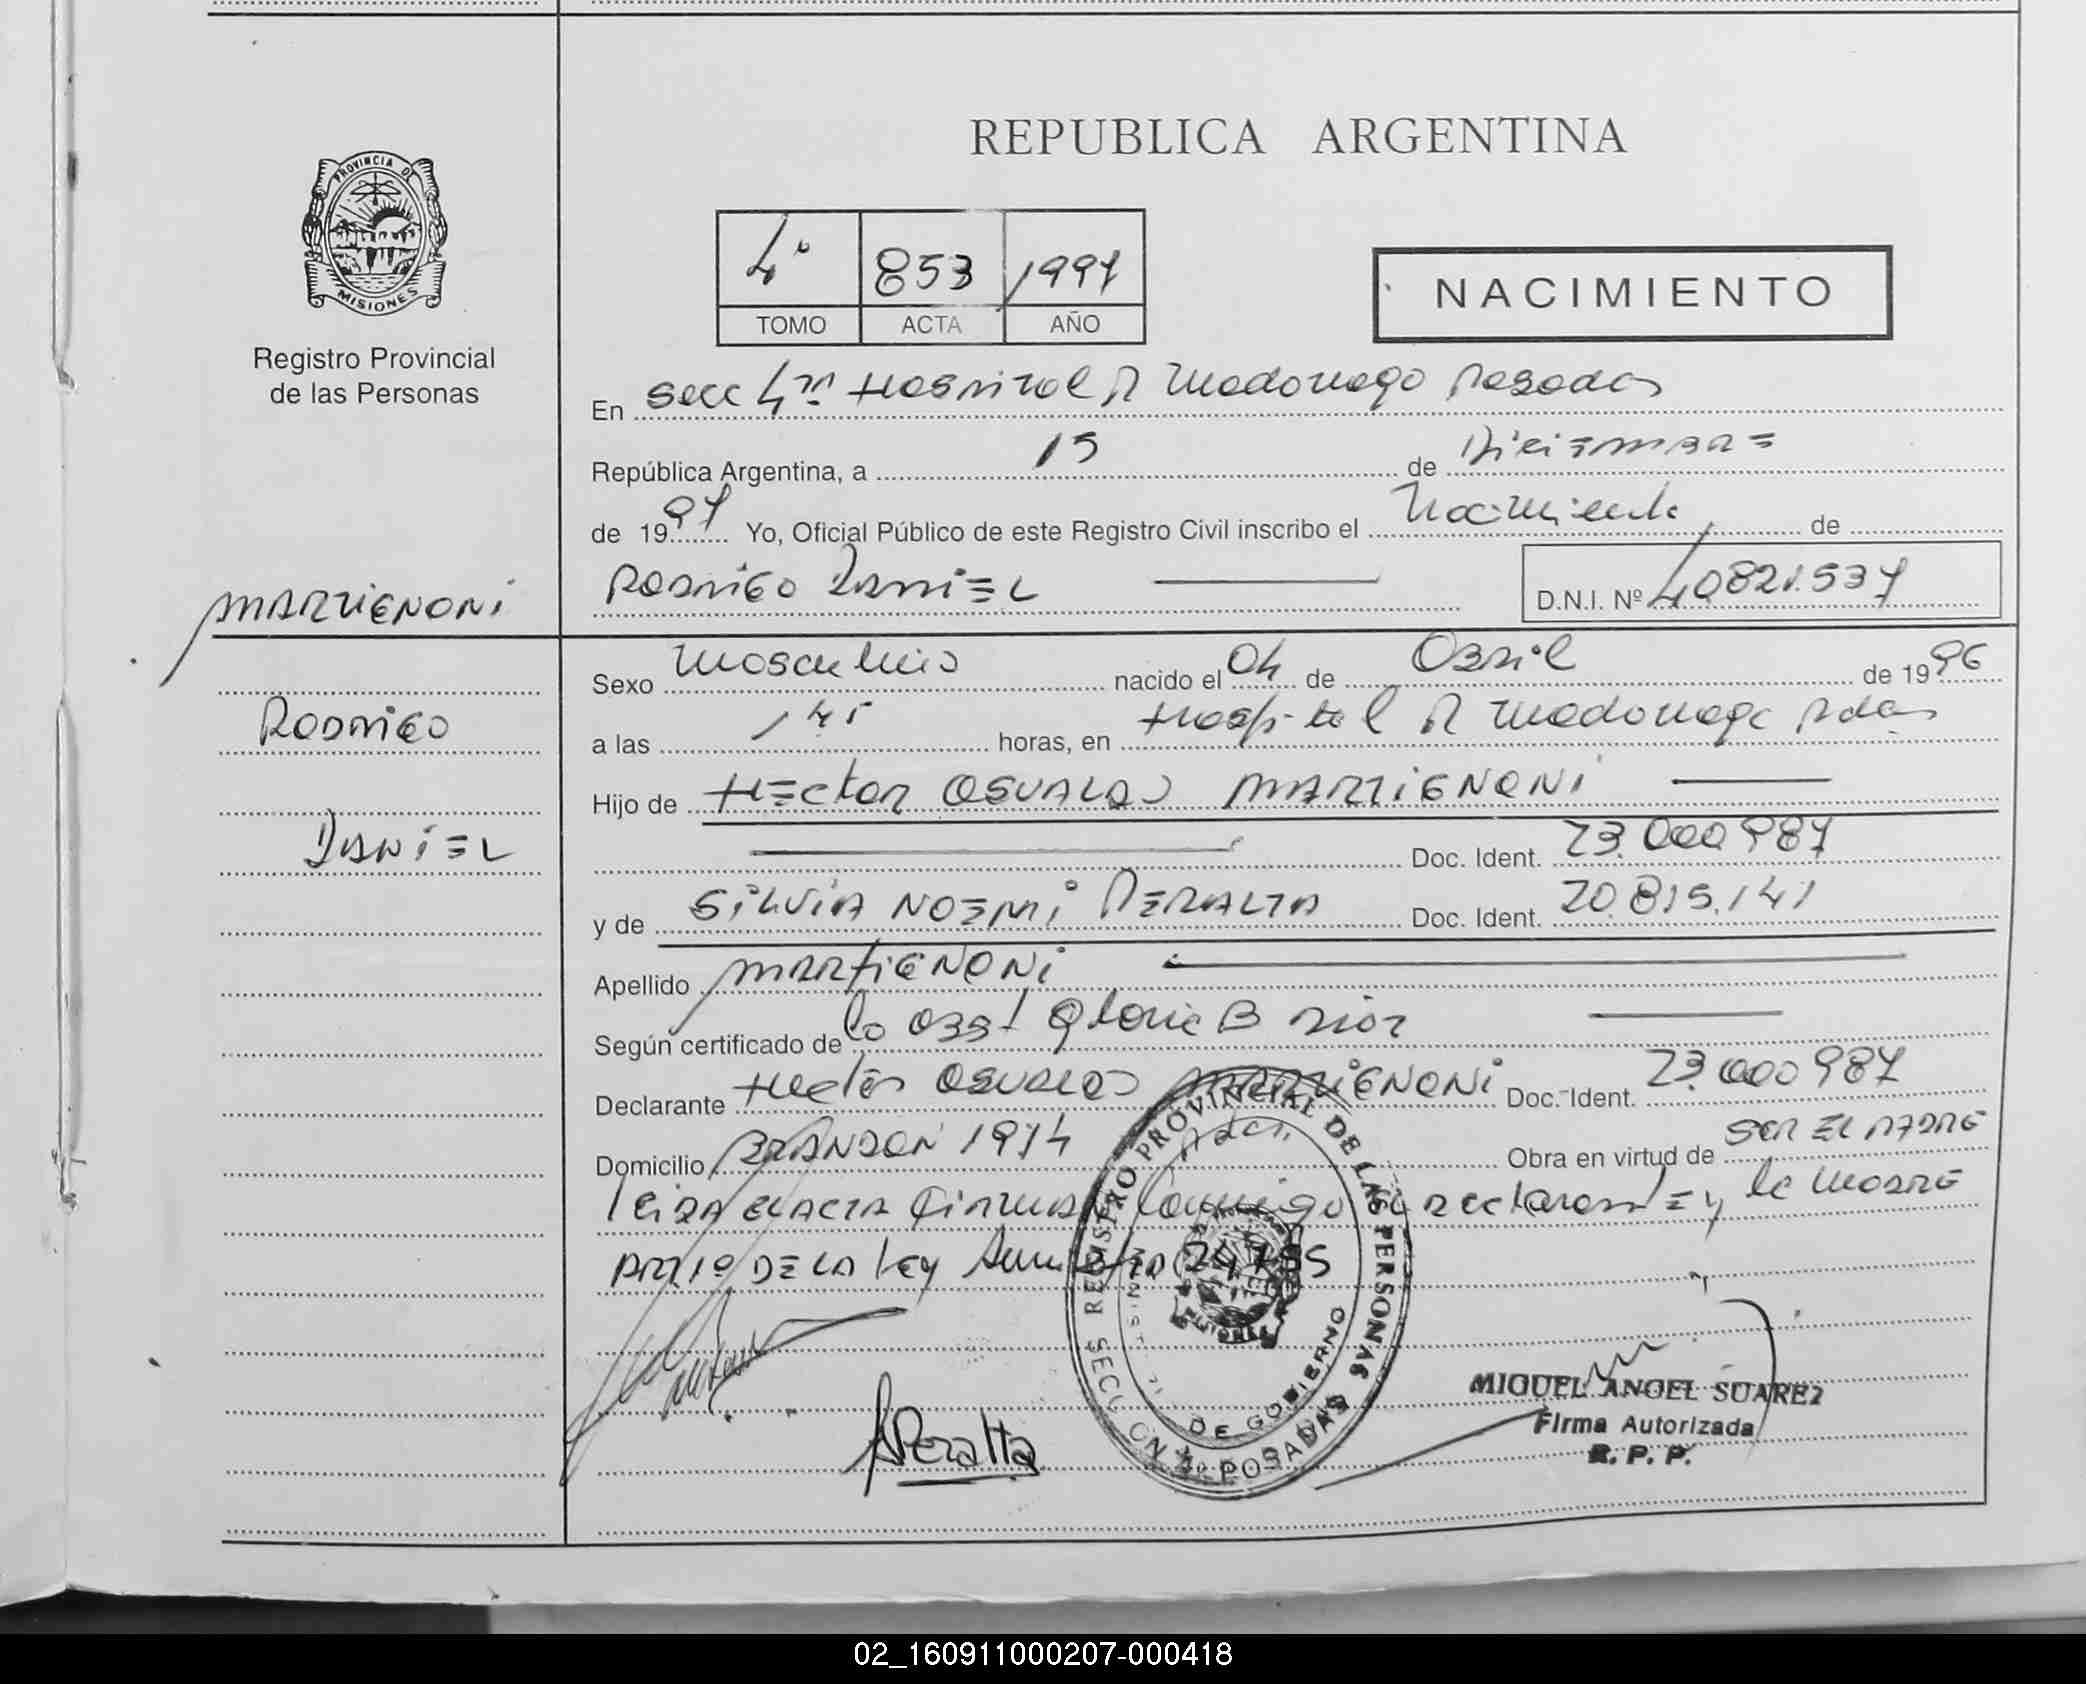 REPUBLICA ARGENTINA
PROVINCIA DE
MISIONES
Registro Provincial
de las Personas
4º 853 1997
TOMO ACTA AÑO
NACIMIENTO
En Secc 4ta Hospital R Madariaga Posadas
República Argentina, a 15 de Diciembre
de 1997 Yo, Oficial Público de este Registro Civil inscribo el Nacimiento de
Rodrigo Daniel D.N.I. Nº 40821.537
MARTIGNONI
Rodrigo
DANIEL
Sexo Masculino nacido el 04 de Abril de 1996
a las 1 45 horas, en Hospital R Madariaga Pdas
Hijo de Hector OSVALDO MARTIGNONI
Doc. Ident. 23.000987
y de SILVIA NOEMI PERALTA Doc. Ident. 20.815.141
Apellido MARTIGNONI
Según certificado de la Obst Gloria B
Declarante Hector OSVALDO MARTIGNONI Doc. Ident. 23.000987
Domicilio 1974 Pdas. Obra en virtud de SER EL PADRE
Leida el ACTA FIRMAN Conmigo el declarante y la MADRE
DE LA Ley
REGISTRO PROVINCIAL DE LAS PERSONAS
SECCION 4º POSADAS
DE GOBIERNO
SPeralta
MIGUEL ANGEL SUAREZ
Firma Autorizada
R. P. P.
02_160911000207-000418